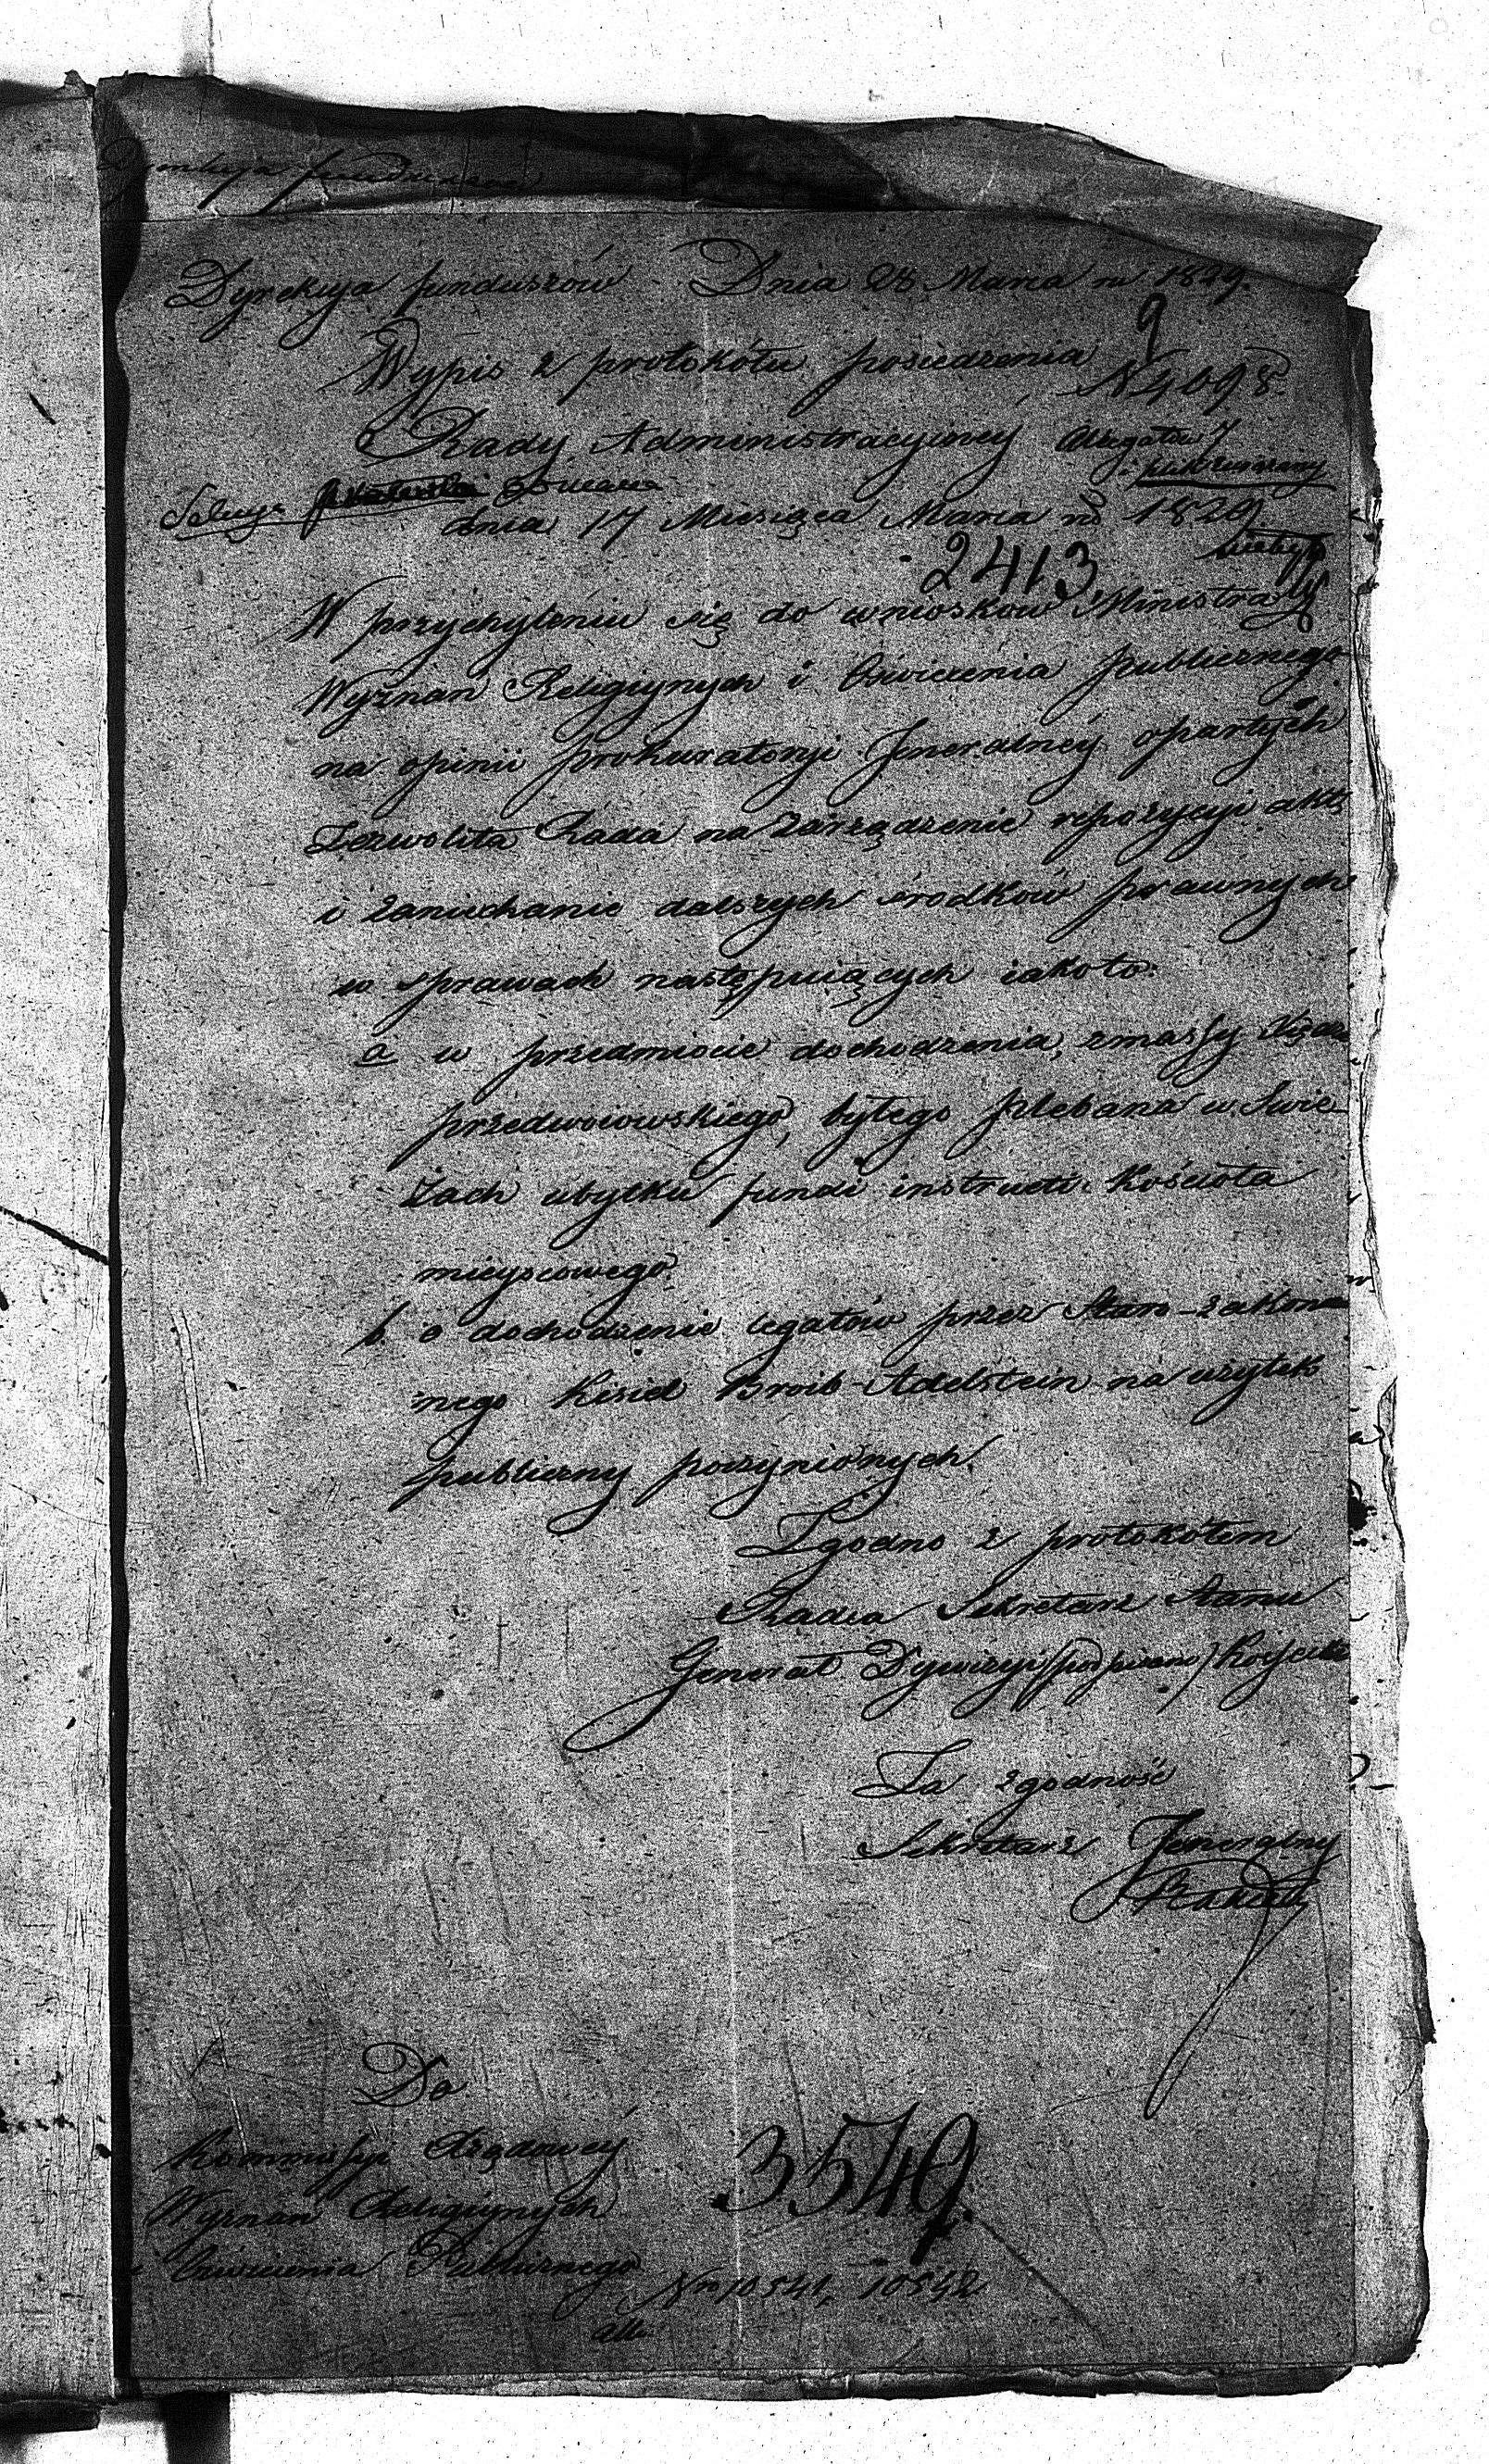 Dyrekcya funduszów Dnia 28 Marca ru 1829.
9
Wypis z protokółu posiedzenia
N 4698
Rady Administracyiney
Sekcya
dnia 17 Miesiąca Marca ro 1829
2413
W przychyleniu się do wniosków Ministra
Wyznań Religiynych i Oświecenia publicznego
na opinii prokuratoryi Jeneralnéy opartych
Zezwoliła Rada na zarządzenie repozycyi akt
i zaniechanie dalszych srodków prawnych
w sprawach następuiących iakoto:
a w przedmiocie dochodzenia, z massy Xiędza
przedwoiowskiego, byłego plebana w Swie-
żach ubytku fundi instructi Kościoła
mieyscowego.
b o dochodzenie legatów przez Staro-zakon-
nego Kisiel Broib-Adelstein na użytek
publiczny poczynionych.
Zgodno z protokółem
Radca Sekretarz Stanu
Jenerał Dywizyi (podpisano) Kossecki
Za zgodność
Sekretarz Jeneralny
Do
Kommissyi Rządowéy
Wyznań Religiynych
i Oświecenia Publicznego
3549
Nro 10541, 10542